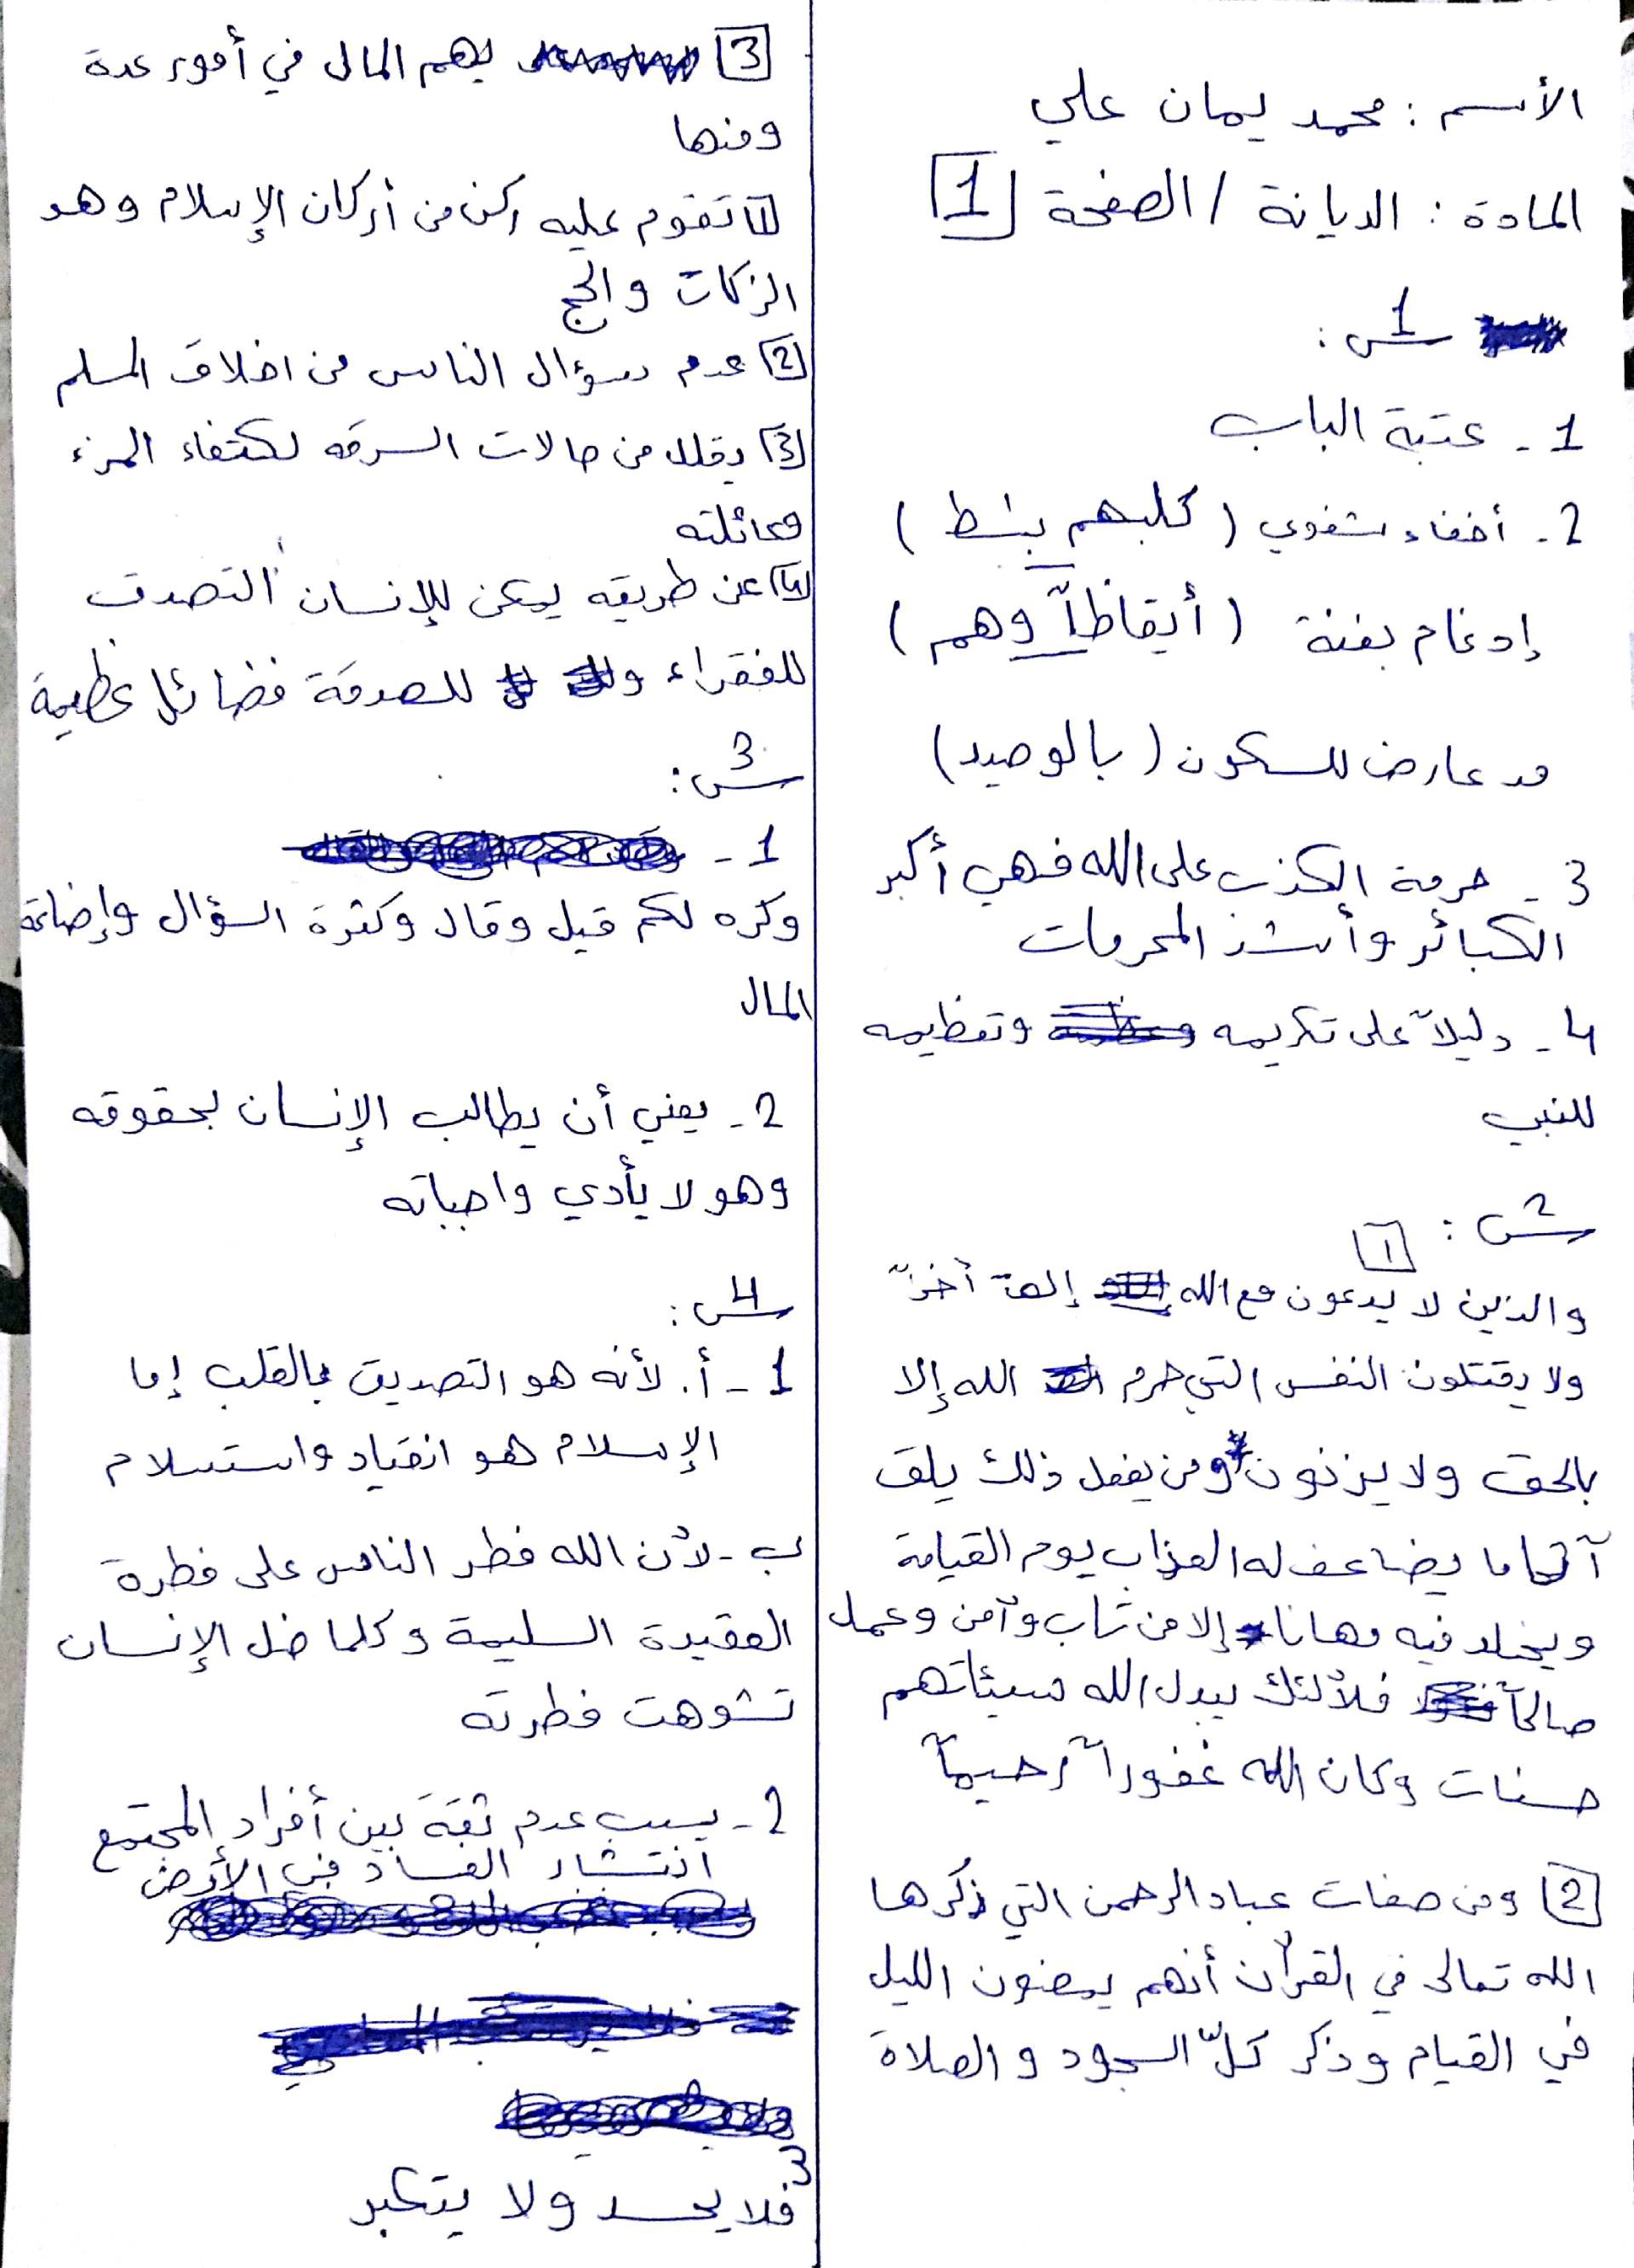 الأسم : محمد يمان علي
المادة : الديانة / الصفحة 1
س1 :
1 - عتبة الباب
2 - أخفاء شفوي ( كلبهم بـٰسط )
إدغام بغنة ( أيقاظاً وهم )
مد عارض للسكون ( بالوصيد )
3 - حرمة الكذب على الله فهي أكبر
الكبائر وأشد المحرمات
4 - دليلاً على تكريمه وتعظيمه
للنبي
س2 :
1
والذين لا يدعون مع الله إلهاً أخر
ولا يقتلون النفس التي حرم الله إلا
بالحق ولا يزنون ومن يفعل ذلك يلق
آثاما يضاعف له العذاب يوم القيامة
ويخلد فيه مهانا إلا من تاب وآمن وعمل
صالحاً فلأئك يبدل الله سيئاتهم
حسنات وكان الله غفوراً رحيماً
2 ومن صفات عباد الرحمن التي ذكرها
الله تعالى في القرآن أنهم يمضون الليل
في القيام وذكر كلّ السجود والصلاة
3 يهم المال في أمور عدة
ومنها
1 تقوم عليه ركن من أركان الإسلام وهو
الزكات والحج
2 عدم سؤال الناس من اخلاق المسلم
3 يقلل من حالات السرقه لكتفاء المرء
وعائلته
4 عن طريقه يمكن للإنسان التصدق
للفقراء و للصدقة فضائل عظيمة
س3 :
1 -
وكره لكم قيل وقال وكثرة السؤال وإضاعة
المال
2 - يعني أن يطالب الإنسان بحقوقه
وهو لا يأدي واجباته
س4 :
1 - أ. لأنه هو التصديق بالقلب إما
الإسلام هو انقياد واستسلام
ب - لأن الله فطر الناس على فطرة
العقيدة السليمة وكلما ضل الإنسان
تشوهت فطرته
2 - يسبب عدم ثقة بين أفراد المجتمع
انتشار الفساد في الأرض
3
فلا يحسد ولا يتكبر